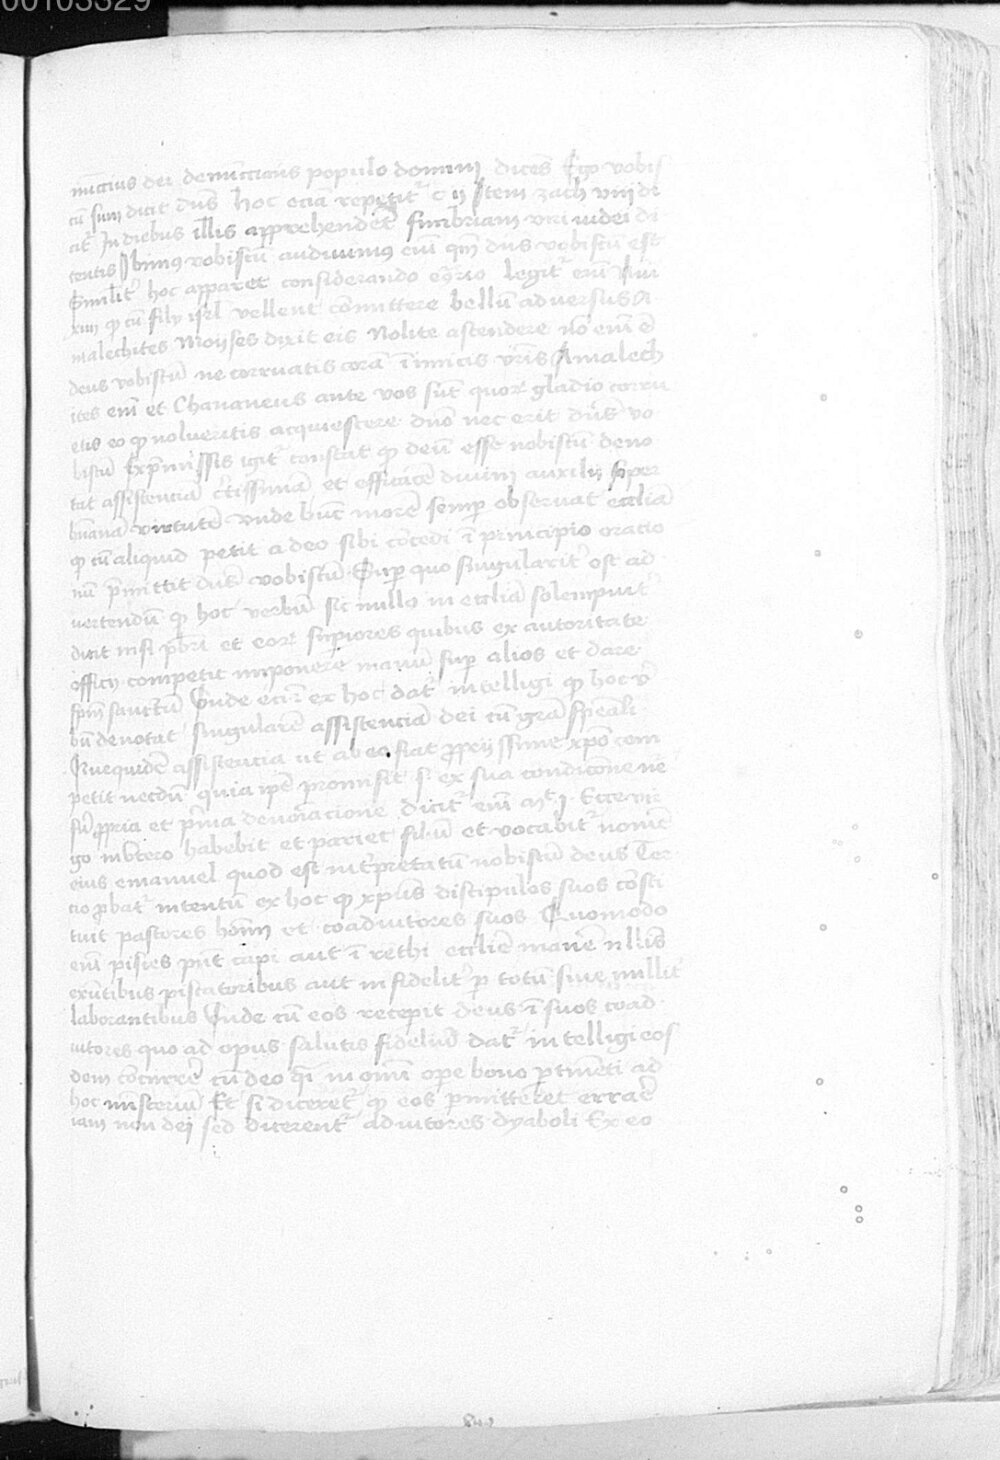 00103329
nūccius dei denūccians populo domini dicēs Ego vobis
cū sum dicit dn̄s hoc eciā repetitr̄ c ij Item zach viij di
cit̄ In diebus illis apprehendēt fimbriam viri iudei di
centes Ibimus vobiscū audivimus eni qm̄ dn̄s vobiscū est
Similit̄ hoc apparet considerando legitr̄ eni
xiiij qͣ cū filij isrl̄ vellent cōmittere bellū adversus A
malechites Moyses dixit eis Nolite ascendere nō eni ē
deus vobiscū ne corruatis corā īimicis vr̄is Amalech
ites eni et Chananeus ante vos sūt quoꝝ gladio corru
etis eo qͣ nolueritis acquiescere dn̄o nec erit dn̄s vo
biscū Ex p̄missis igit̄ constat qͣ deū esse nobiscū deno
tat assistenciā c̄tissimā et efficacē divini auxilij super
hūanā virtutē vnde hūc morē semp observat ecc̄liā
qͣ cū aliquid petit a deo sibi cōcedi ī principio oracio
nū p̄mittit dn̄s vobiscū Sup quo singularit̄ est ad
vertendū qͣ hoc verbū sic nullꝰ in ecc̄lia solempnit̄
dicit nisi p̄br̄i et eoꝝ supiores quibus ex autoritate
officij competit imponere manū sup alios et dare
sp̄m sanctū Vnde eciā ex hoc dat̄ intelligi qͣ hoc v̄
bū denotat singularē assistenciā dei cū grā sp̄eali
Nuequidē assistencia ut ab eo fiat p̄prijssime xp̄o com
petit necdū quia ip̄e promisit sꝫ ex sua condicōne
p̄pria et p̄ma denoīacione dicitr̄ eni mt̄ j Ecce vir
go in vtero habebit et pariet filiū et vocabitr̄ nomē
eius emanuel quod est int̄pretatū nobiscū deus Ter
cio p̄bat̄ intentū ex hoc qͣ xpūs discipulos suos cōsti
tuit pastores hoīm et coadiutores suos Quomodo
eni pisces pn̄t capi aut ī rethi ecclie manē nllis
exn̄tibus piscatoribus aut infidelit̄ p totū sive nullit̄
laborantibus Vnde cū eos recepit deus ī suos coad
iutores quo ad opus salutis fideliū dat̄ intelligi eos
dem cōcurrē cū deo qͣsi in omī ope bono ptinēti ad
hoc mīsteriū Et si diceretr̄ qͣ eos p̄mitteret errare
iam non dei sed dicerentr̄ adiutores dyaboli Ex eo